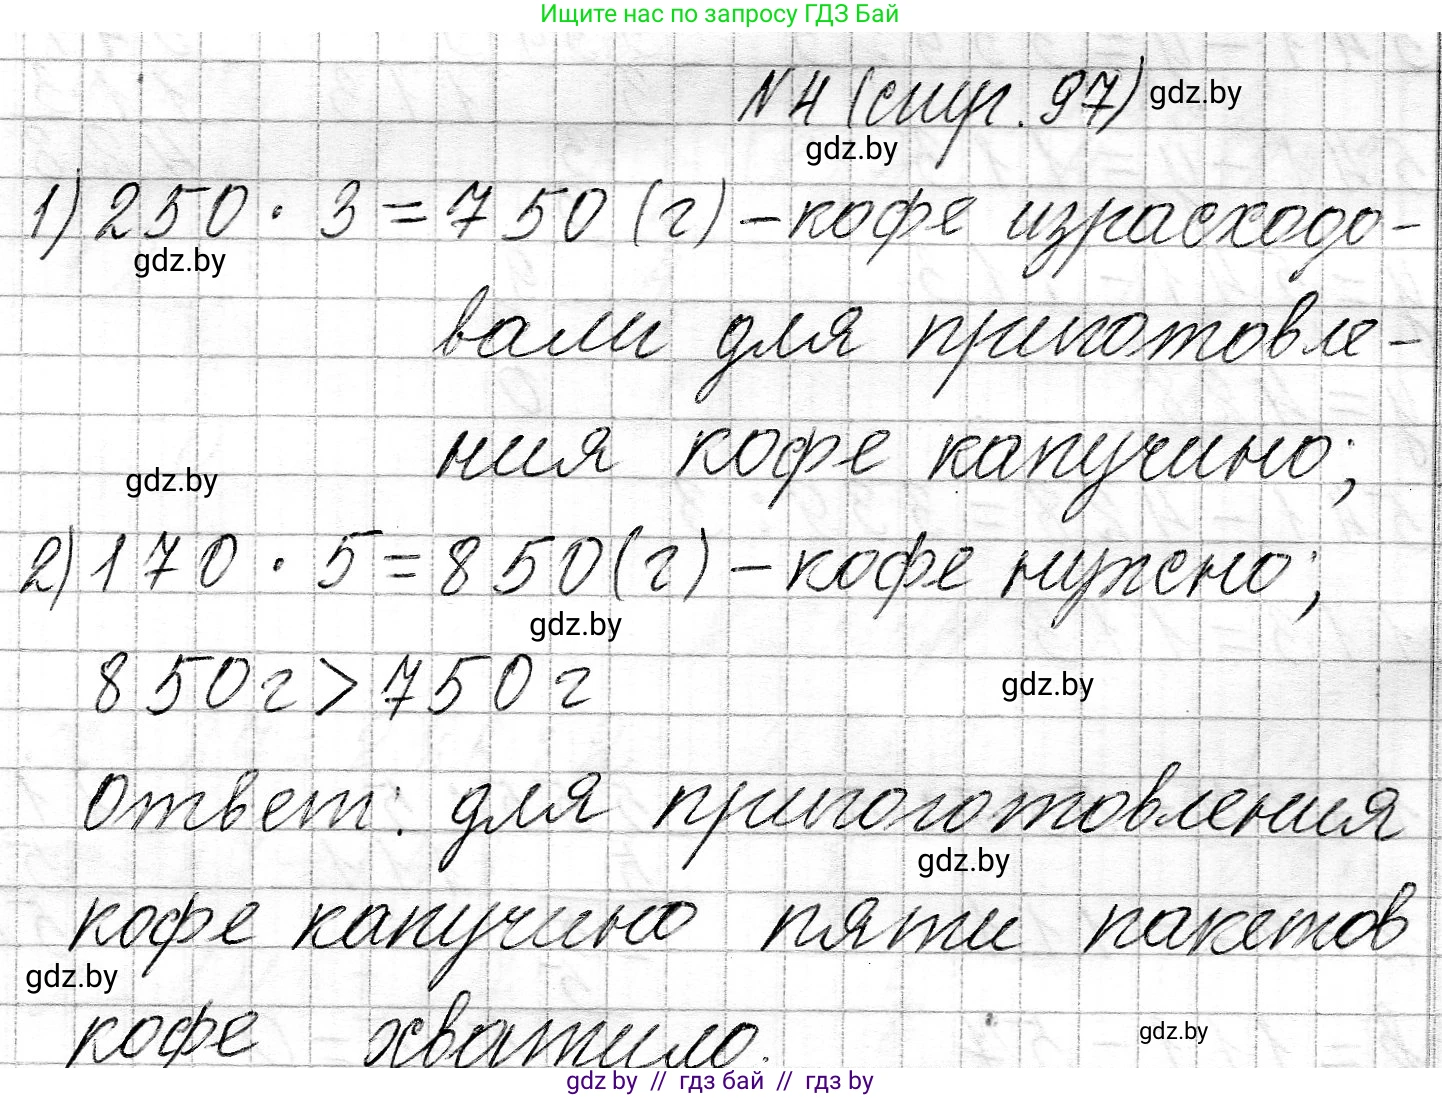 Ищите нас по запросу ГДЗ Бай
№4 (стр. 97) gdz.by
gdz.by
1) 250 · 3 = 750 (г) – кофе израсходо-
gdz.by
вали для приготовле-
ния кофе капучино;
gdz.by
2) 170 · 5 = 850 (г) – кофе нужно;
gdz.by
850 г > 750 г
gdz.by
Ответ: для пригоготовления
gdz.by
кофе капучино пяти пакетов
gdz.by
кофе хватило.
gdz.by
gdz by // гдз бай // гдз by